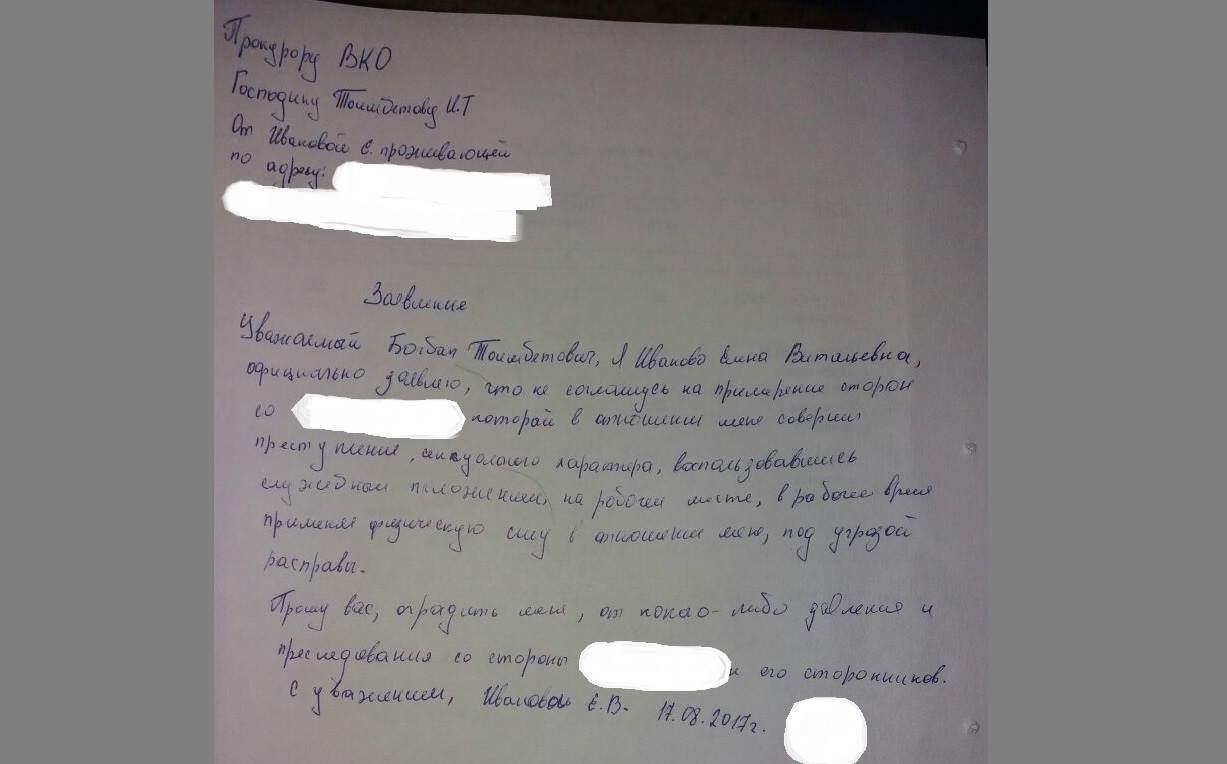 Прокурору ВКО
Господину Тоимбетову И.Т
От Ивановой Е. проживающей
по адресу:
Заявление
Уважаемый Тоимбетович, Я Иванова Елена Витальевна,
официально заявляю, что не соглашусь на примерение сторон
со который в отношении мене совершил
преступление, сексуального характера, воспользовавшись
служебным положением, на рабочем месте, в рабочее время
применяя физическую силу в отношении меня, под угрозой
расправы.
Прошу вас, оградить меня, от какао-либо давления и
преследования со стороны и его сторонников.
С уважением, Иванова Е.В. 17.08.2017г.